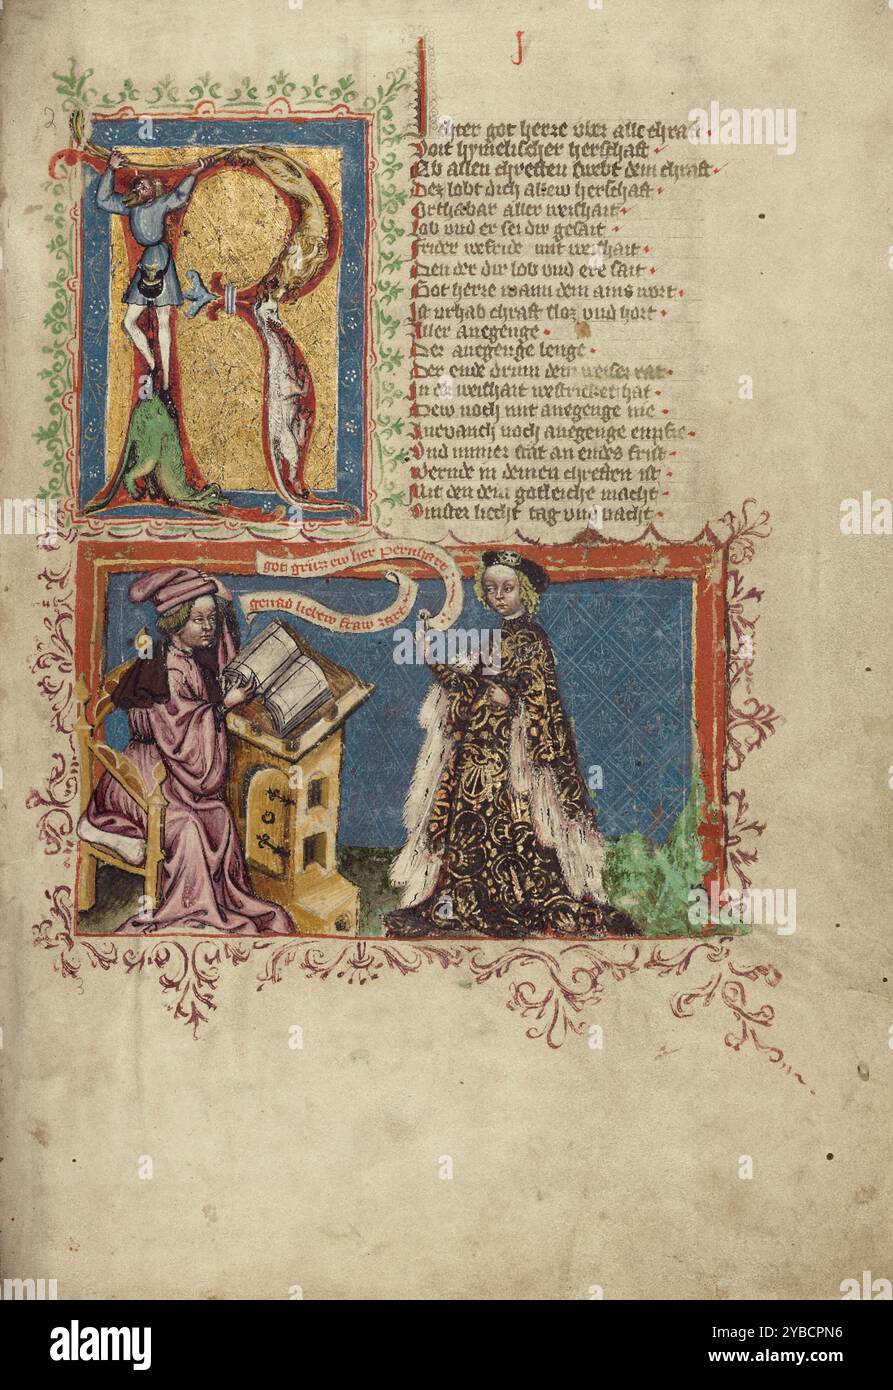 J
2
Richter got herre vber alle chraft
Voit hymelischer herschaft
Ob allen chreften swebt dein chraft
Dez lobt dich allew herschaft
Orthabar aller weishait
Lob vnd er sei dir gesait
Frider wefride mit weishait
Den der dir lob vnd ere sait
Got herre wann dein ains wort
Ist urhab chraft sloz vnd hort
Aller anegenge
Der anegenge lenge
Der ende drum dein weiser rat
In der weishait westricket hat
Dew noch mit anegenge nie
Anevanch noch anegenge enpfie
Vnd immer stat an endes frist
Wernde in deinen chreften ist
Mit den dein gotleiche macht
Vinster liecht tag vnd nacht
got grüzz ew her Pernhart
genad liebew fraw zart
3
alamy
Image ID: 2YBCPN6
www.alamy.com